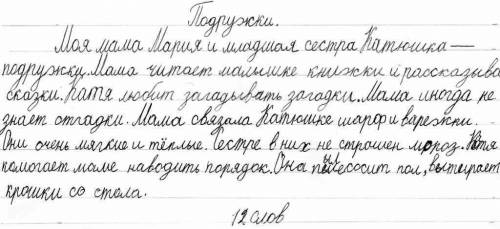 Подружки.
Моя мама Мария и младшая сестра Катюшка —
подружки. Мама читает малышке книжки и рассказыва
сказки. Катя любит загадывать загадки. Мама иногда не
знает отгадки. Мама связала Катюшке шарф и варежки.
Они очень мягкие и тёплые. Сестре в них не страшен мороз. Катя
помогает маме наводить порядок. Она пылесосит пол, вытирает
крошки со стола.
12 слов